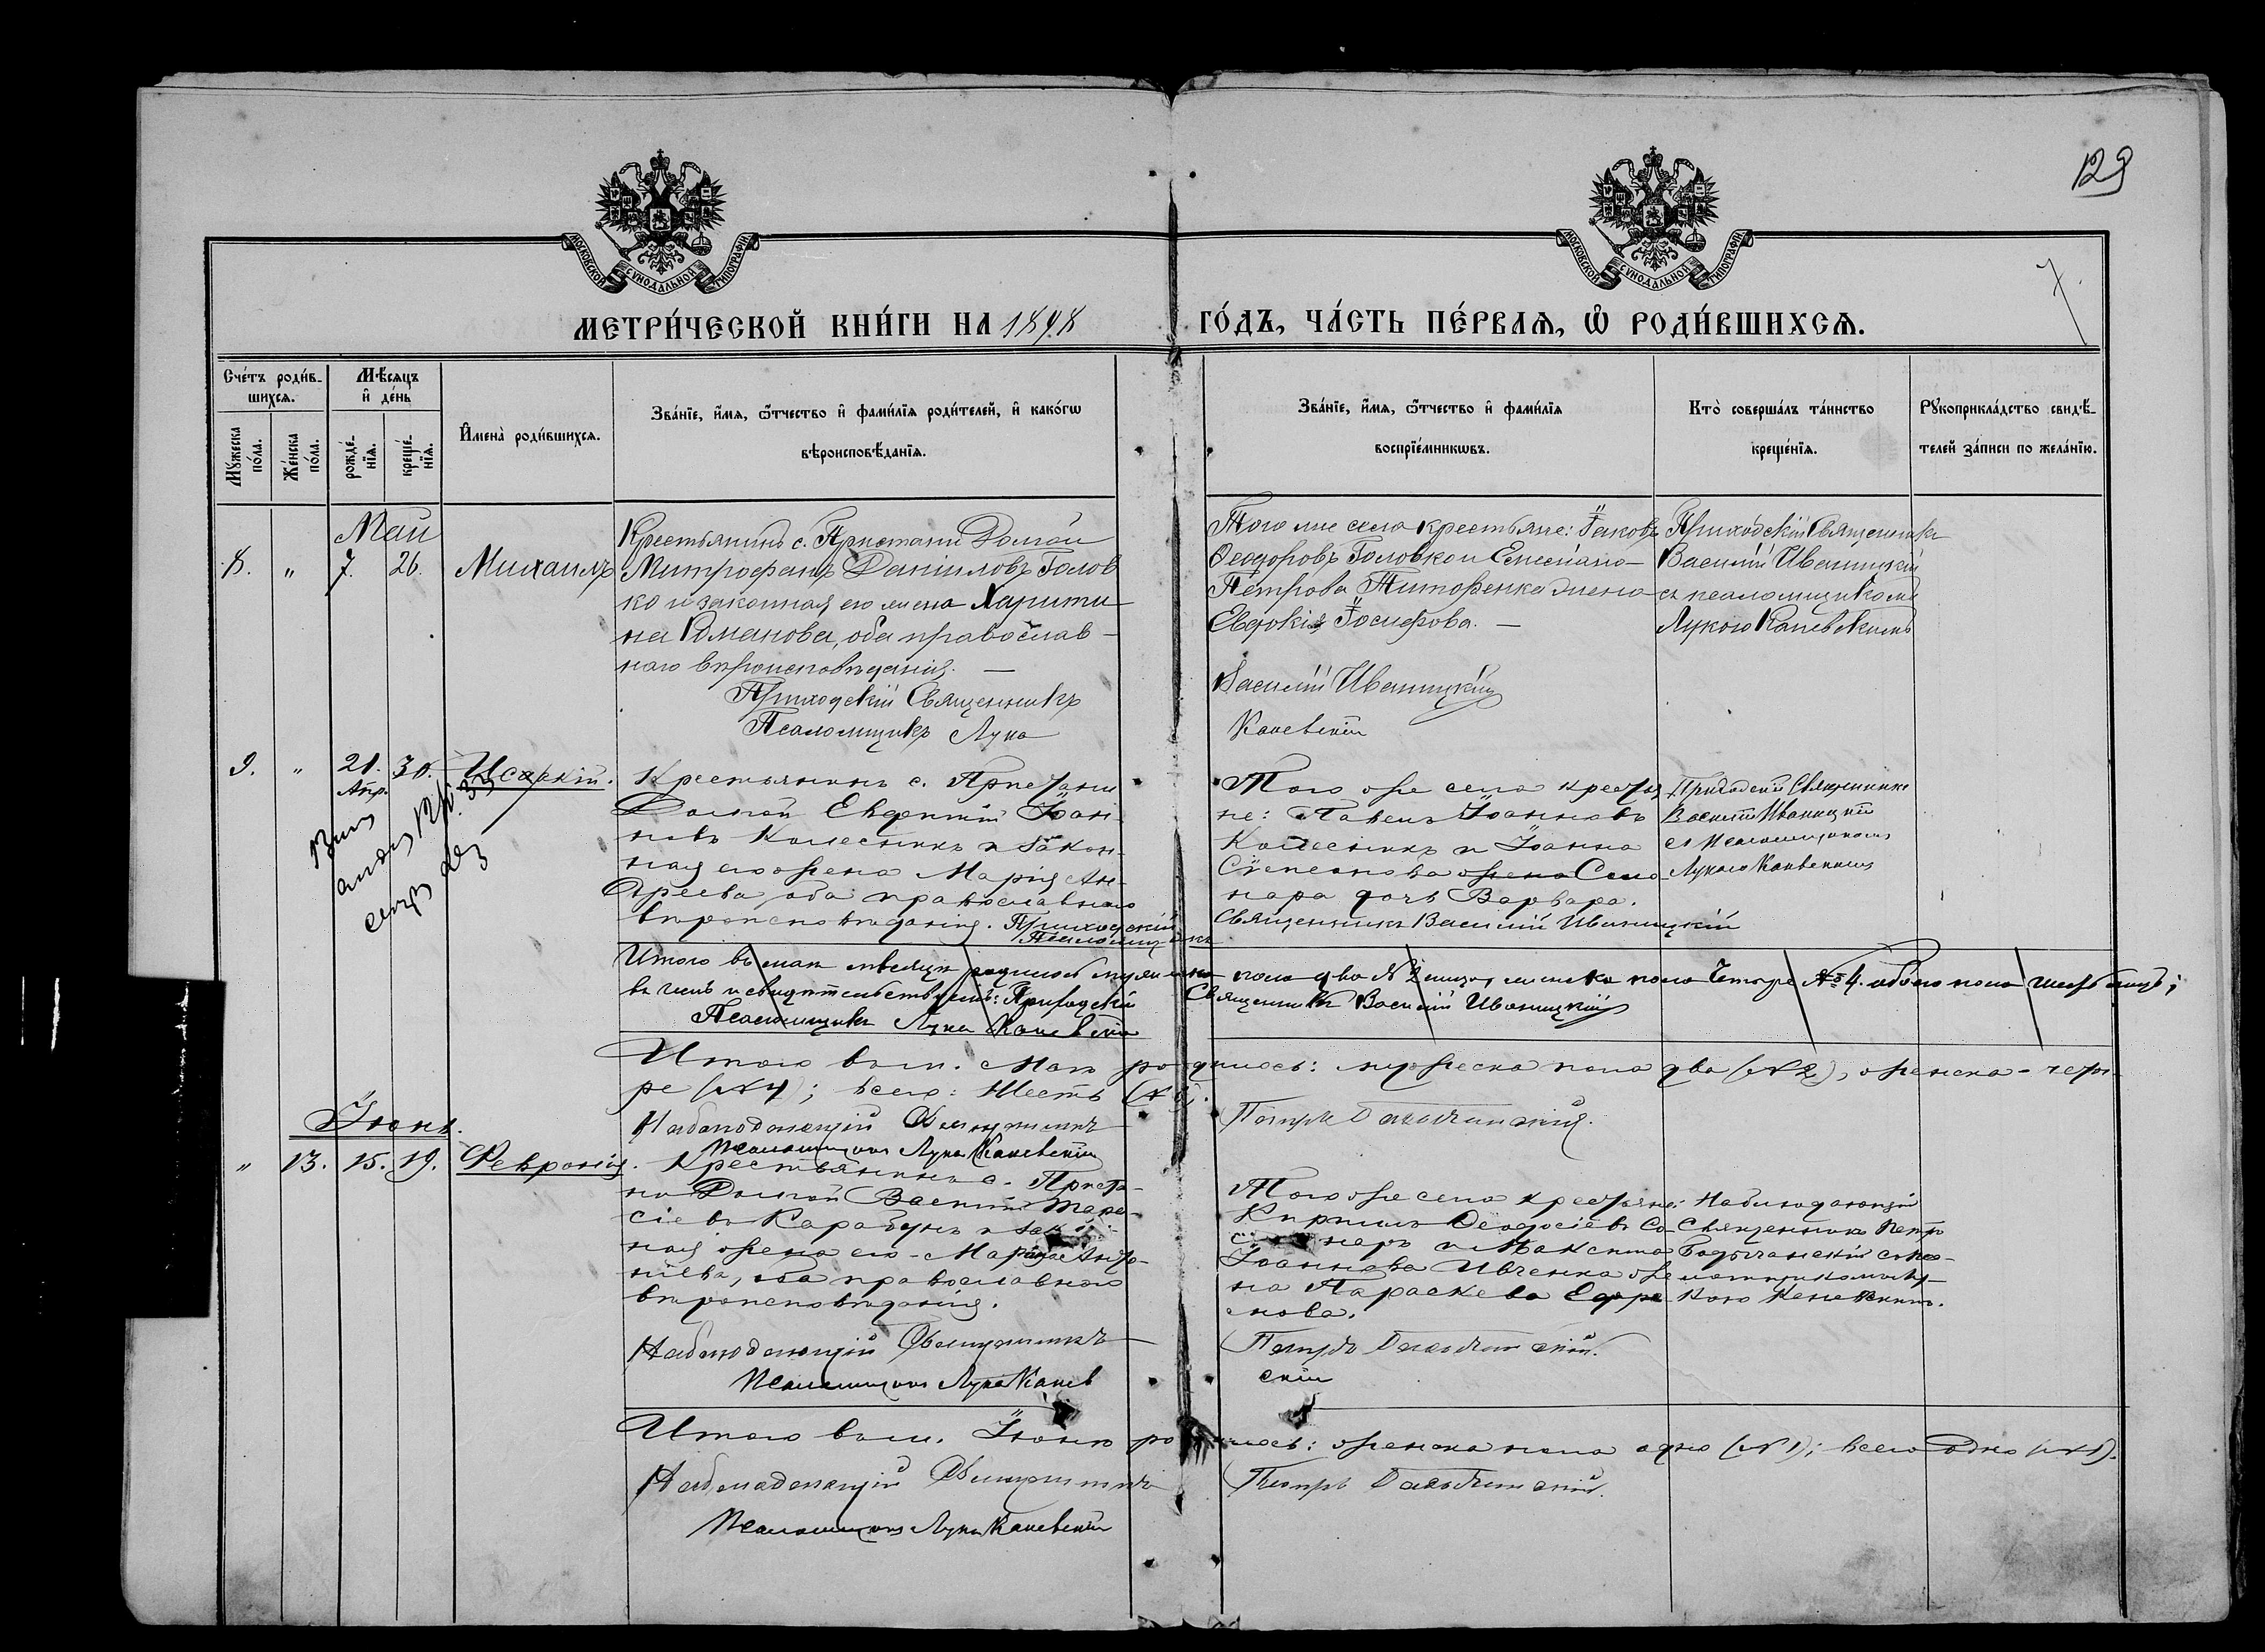 129
7.
МОСКОВСКОЙ СѴНОДАЛЬНОЙ ТИПОГРАФІИ
МОСКОВСКОЙ СѴНОДАЛЬНОЙ ТИПОГРАФІИ
МЕТРИ́ЧЕСКОЙ КНИ́ГИ НА 1898
ГО́ДЪ, ЧА́СТЬ ПЕ́РВАЯ, Ѡ҆ РОДИ́ВШИХСЯ.
Сче́тъ роди́в-
шихсѧ.
Мѣ́сѧцъ
и҆ де́нь
Мꙋ́жеска по́ла.
Же́нска по́ла.
рожде́-
нїѧ.
креще́-
нїѧ.
И҆мена̀ роди́вшихсѧ.
Зва́нїе, и҆́мѧ, ѻ҆́тчество и҆ фами́лїѧ роди́телей, и҆ како́гѡ
вѣроисповѣ́данїѧ.
Зва́нїе, и҆́мѧ, ѻ҆́тчество и҆ фами́лїѧ
воспрїе́мникѡвъ.
Кто̀ соверша́лъ та́инство
креще́нїѧ.
Рꙋкоприкла́дство свидѣ́-
телей за́писи по жела́нїю.
Май
8. " 7. 26. Михаилъ
Крестьянинъ с. Пристани Долгой
Митрофанъ Даніиловъ Голов
ко и законная его жена Харити
на Романова, оба православ-
наго вѣроисповѣданія. —
Приходскій Священникъ
Псаломщикъ Лука
Того же села крестьяне: Іаковъ
Ѳеодоровъ Головко и Емеліана
Петрова Титоренка жена
Евдокія Іосифова. —
Василій Иваницкій
Каневскій
Приходскій Священникъ
Василій Иваницкій
съ псаломщикомъ
Лукою Каневскимъ
9. " 21. 30. Исаакій.
Апр.
Крестьянинъ с. Пристани
Долгой Евфимій Іоан-
новъ Колесникъ и закон-
ная его жена Марія Ан-
дреева, оба православнаго
вѣроисповѣданія. Приходскій
Псаломщикъ
Того же села крестья
не: Павелъ Іоанновъ
Колесникъ и Іоанна
Степанова жена
дочь Варвара.
Священникъ Василій Иваницкій
Приходскій Священникъ
Василій Иваницкій
съ Псаломщикомъ
Лукою Каневскимъ
Итого въ маѣ мѣсяцѣ родилось мужеска пола два № 2 женска пола четыре № 4. обоего пола шесть
въ чемъ и свидѣтельствуемъ: Приходскій Священникъ Василій Иваницкій
Псаломщикъ Лука Каневскій
Итого въ м. Маѣ родилось: мужеска пола два (№ 2), женска - четы-
ре (№ 4); всего: Шесть
Наблюдающій Священникъ Петръ
Псаломщикъ Лука Каневскій
Іюнь.
" 13. 15. 19. Февронія.
Крестьянинъ с. Приста-
ни Долгой Василій Тара-
сіевъ Карабунъ и
ная жена его - Марія Анто-
ніева, оба православнаго
вѣроисповѣданія.
Наблюдающій Священникъ
Псаломщикъ Лука Канев
Того же села крестьяне:
Кириллъ Ѳеодосіевъ
и Максима
Іоаннова Ивченка же
на Параскева Ефре
мова.
Петръ
скій
Наблюдающій
Священникъ Петръ
Итого въ м. Іюнѣ родилось: женска пола одно (№ 1); всего Одно (№ 1).
Наблюдающій Священникъ Петръ
Псаломщикъ Лука Каневскій